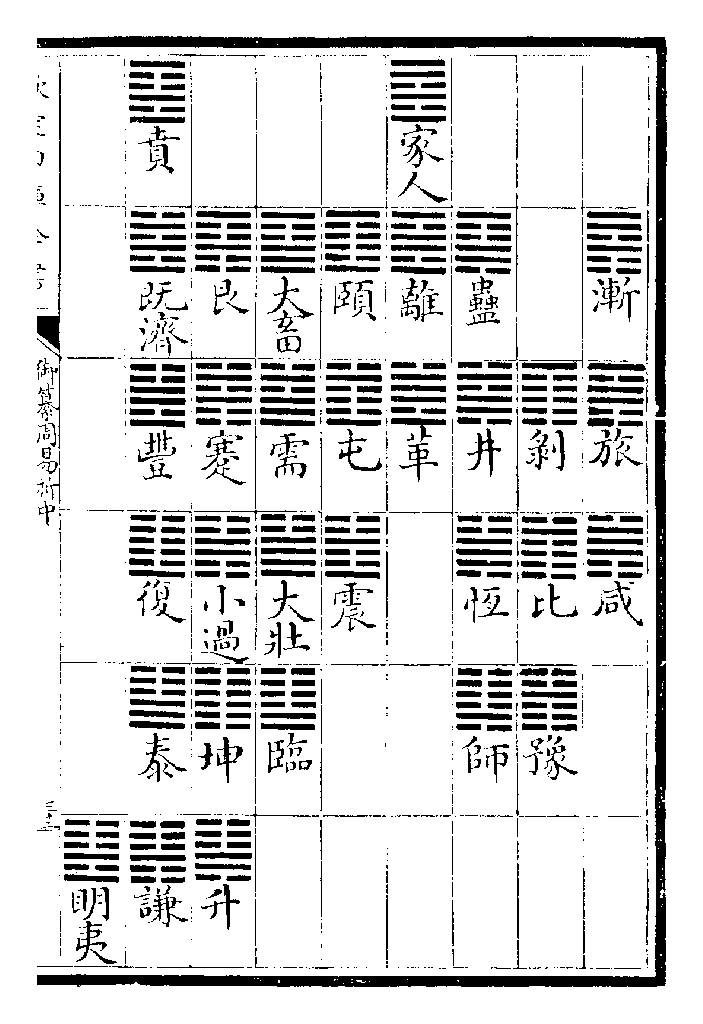 漸
旅
咸
剝
比
豫
蠱
井
恆
師
家人
離
革
頤
屯
震
大畜
需
大壯
臨
艮
蹇
小過
坤
升
賁
既濟
豐
復
泰
謙
明夷
欽定四庫全書
御纂周易折中